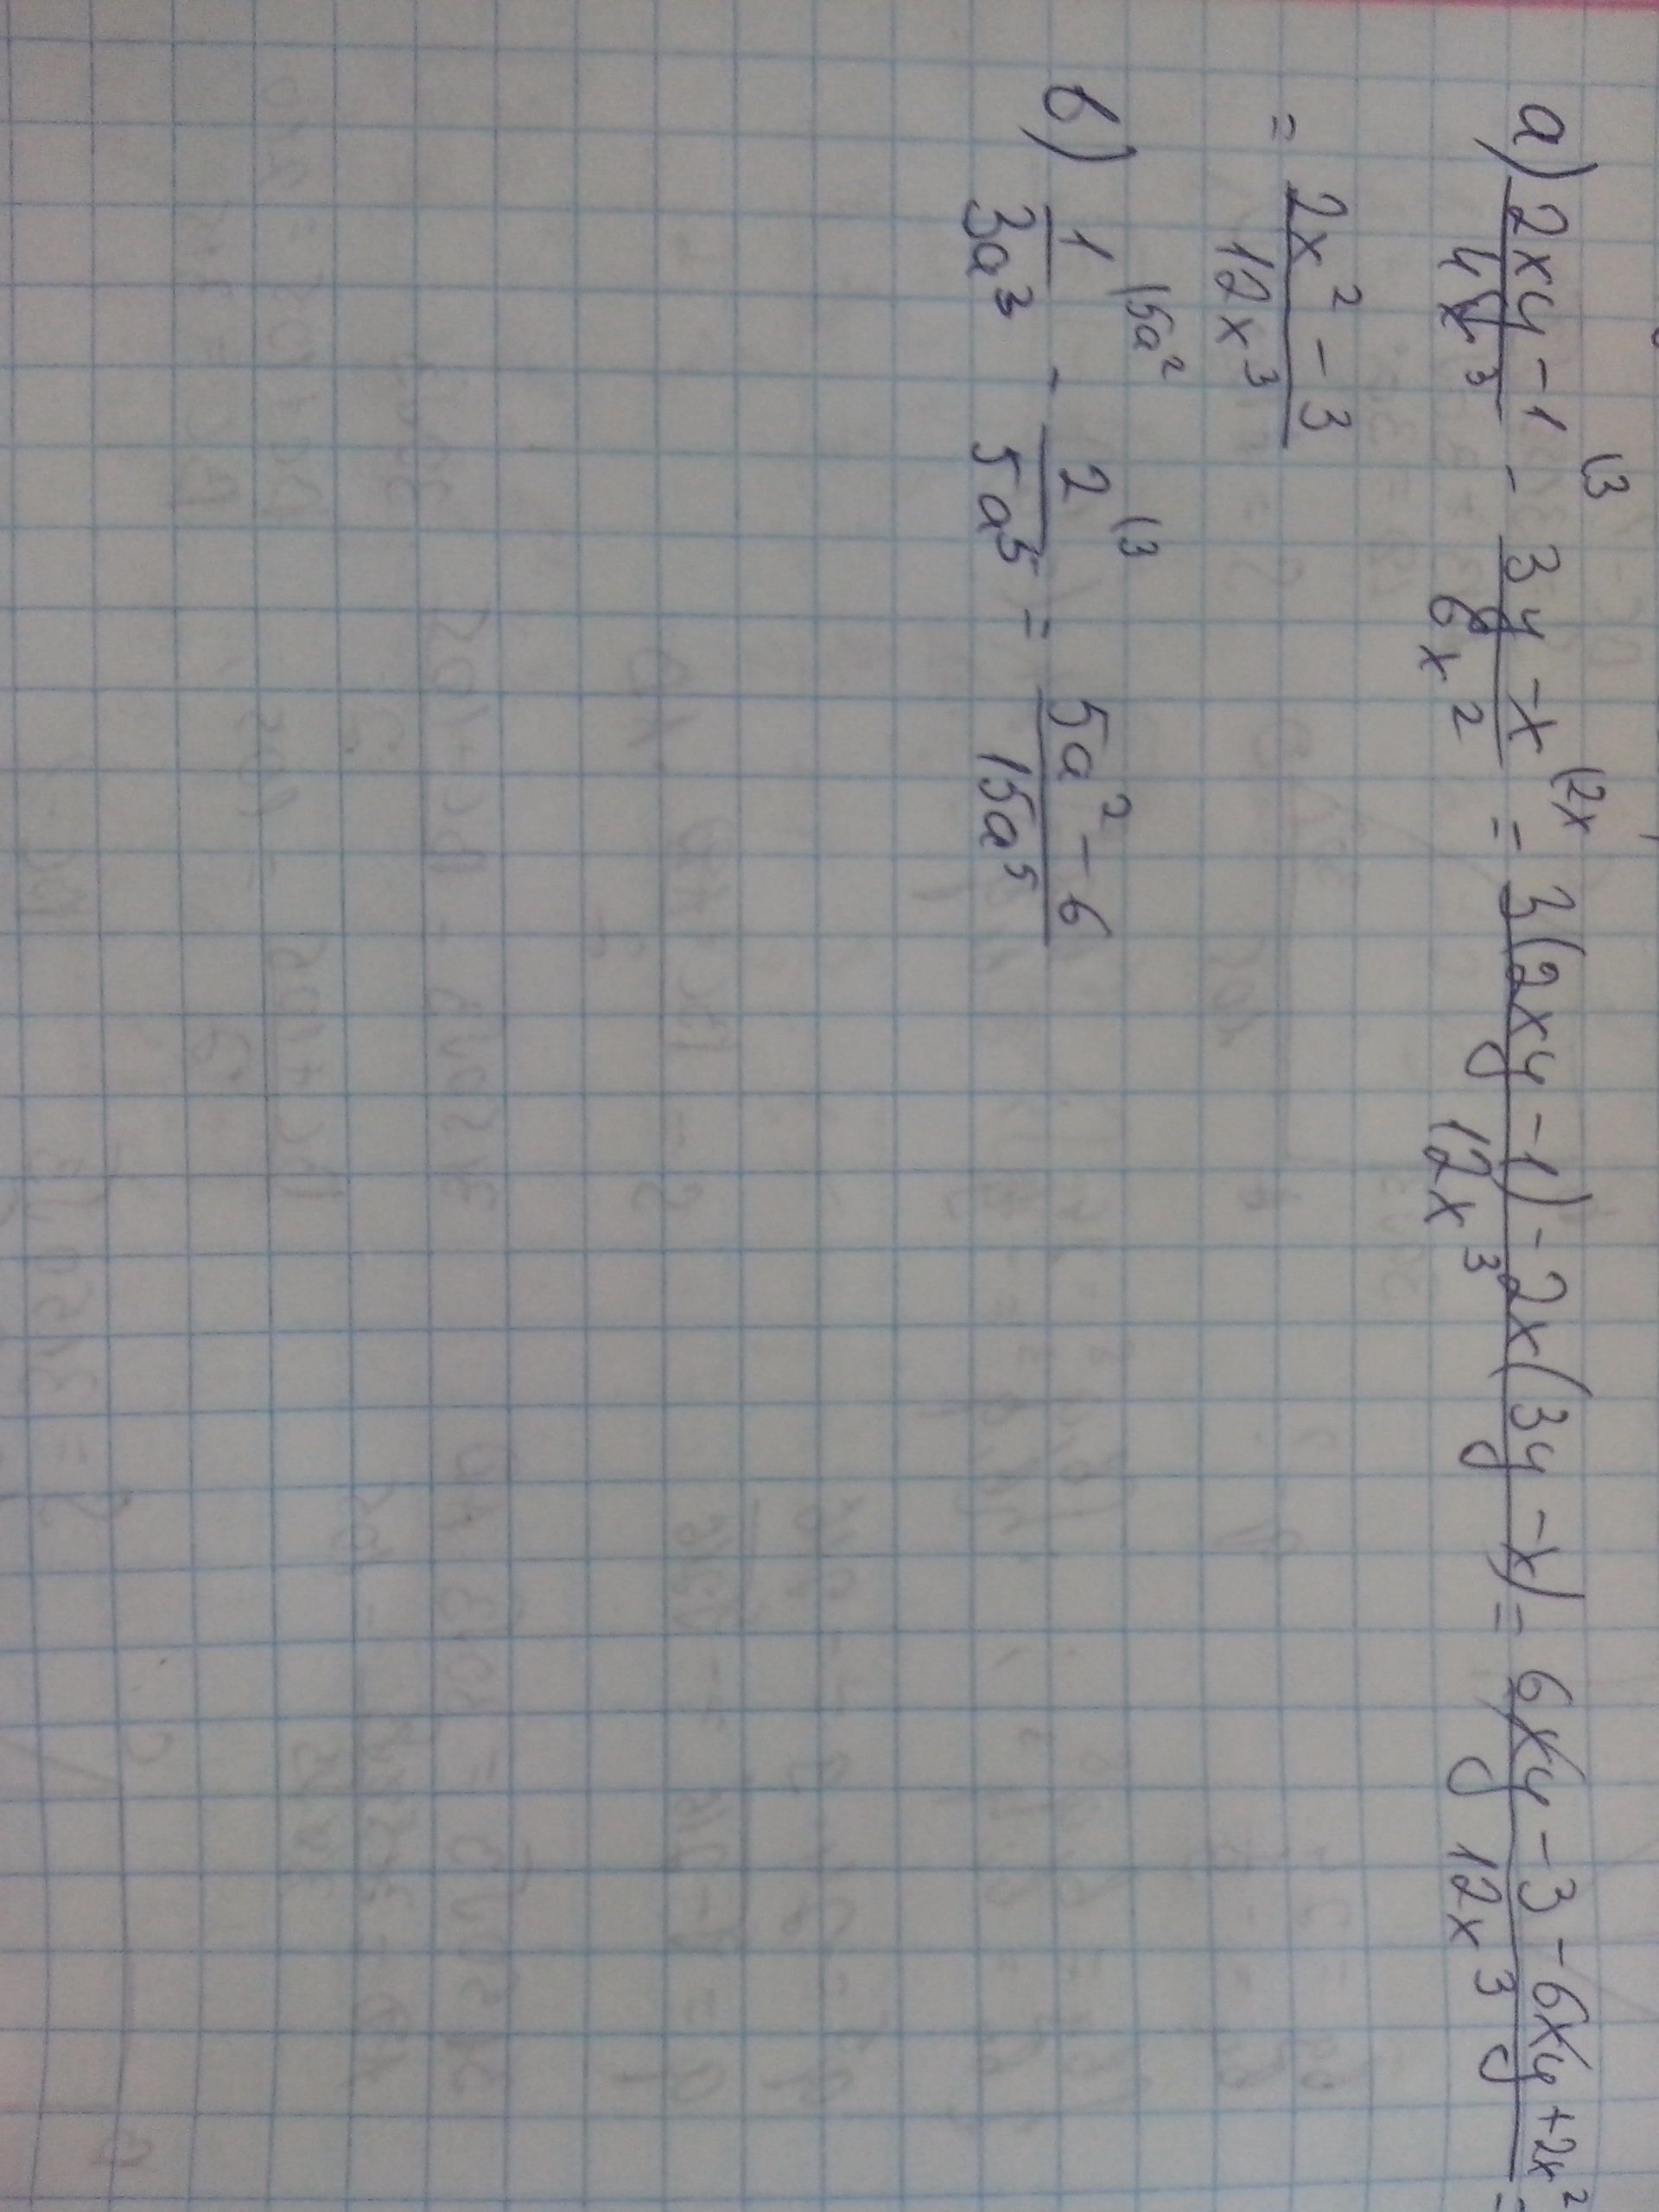 а) (2xy - 1)/(4x³) (3 - (3y - x)/(6x²) (2x = (3(2xy - 1) - 2x(3y - x))/(12x³) = (6xy - 3 - 6xy + 2x²)/(12x³) =
= (2x² - 3)/(12x³)
в) 1/(3a³) (5a² - 2/(5a⁵) (3 = (5a² - 6)/(15a⁵)